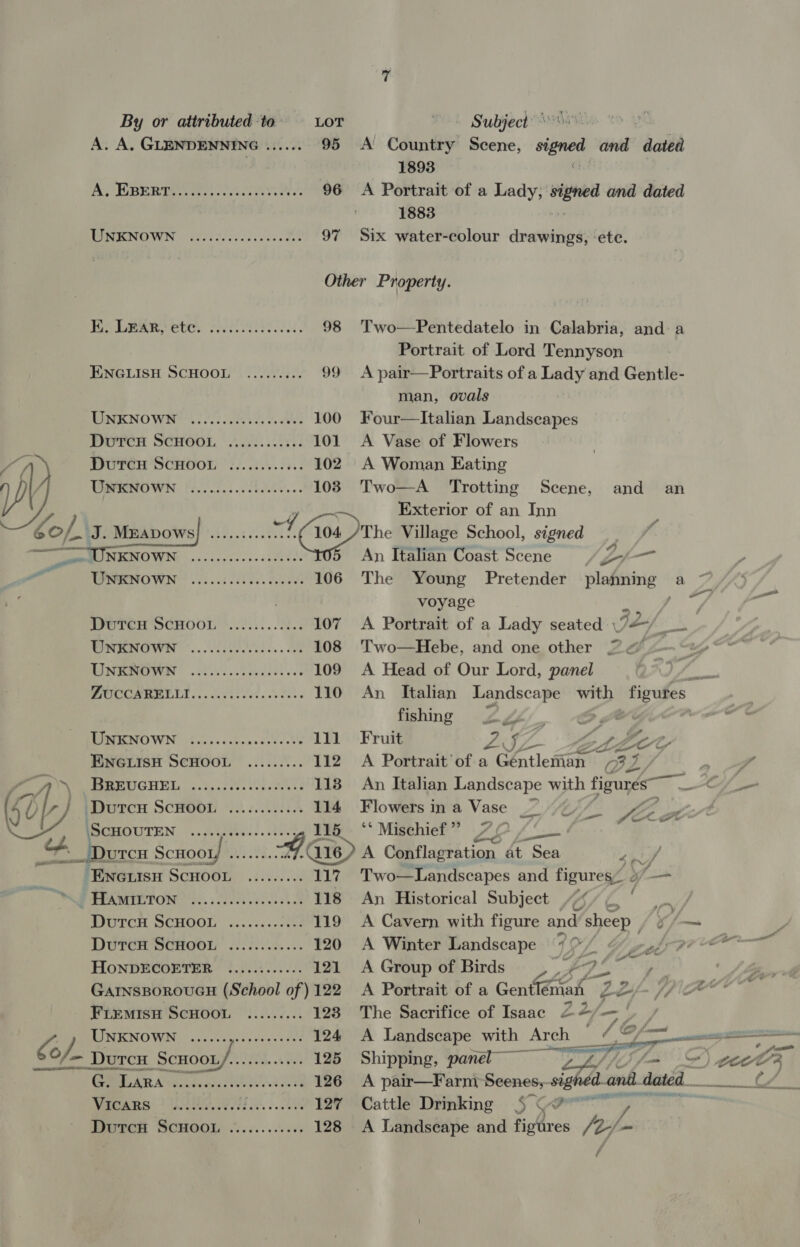 7
By or attributed to LOT Subject
A. A. GLENDENNING ...... 95 A Country Scene, signed and dated
1893
A. EBERT........................ 96 A Portrait of a Lady, signed and dated
1883
UNKNOWN ..................... 97 Six water-colour drawings, etc.
Other Property.
E. LEAR, etc. .................. 98 Two—Pentedatelo in Calabria, and a
Portrait of Lord Tennyson
ENGLISH SCHOOL ......... 99 A pair—Portraits of a Lady and Gentle-
man, ovals
UNKNOWN ..................... 100 Four—Italian Landscapes
DUTCH SCHOOL ............ 101 A Vase of Flowers
DUTCH SCHOOL ............ 102 A Woman Eating
UNKNOWN ..................... 103 Two—A Trotting Scene, and an
Exterior of an Inn
60/- J. MEADOWS ............... 104 The Village School, signed
UNKNOWN ..................... 105 An Italian Coast Scene
UNKNOWN ..................... 106 The Young Pretender planning a
voyage
DUTCH SCHOOL ............ 107 A Portrait of a Lady seated
UNKNOWN ..................... 108 Two—Hebe, and one other
UNKNOWN ..................... 109 A Head of Our Lord, panel
ZUCCARELLI.................. 110 An Italian Landscape with figures
fishing
UNKNOWN ..................... 111 Fruit
ENGLISH SCHOOL ......... 112 A Portrait of a Gentleman
BREUGHEL ..................... 113 An Italian Landscape with figures
DUTCH SCHOOL ............ 114 Flowers in a Vase
SCHOUTEN ..................... 115 “Mischief”
DUTCH SCHOOL ............ 116 A Conflagration at Sea
ENGLISH SCHOOL ......... 117 Two—Landscapes and figures
HAMILTON ..................... 118 An Historical Subject
DUTCH SCHOOL ............ 119 A Cavern with figure and sheep
DUTCH SCHOOL ............ 120 A Winter Landscape
HONDECOETER ............ 121 A Group of Birds
GAINSBOROUGH (School of) 122 A Portrait of a Gentleman
FLEMISH SCHOOL ......... 123 The Sacrifice of Isaac
UNKNOWN ..................... 124 A Landscape with Arch
60/- DUTCH SCHOOL ............ 125 Shipping, panel
G. LARA ........................ 126 A pair—Farm Scenes, signed and dated
VICARS ........................ 127 Cattle Drinking
DUTCH SCHOOL ............ 128 A Landscape and figures 12/-